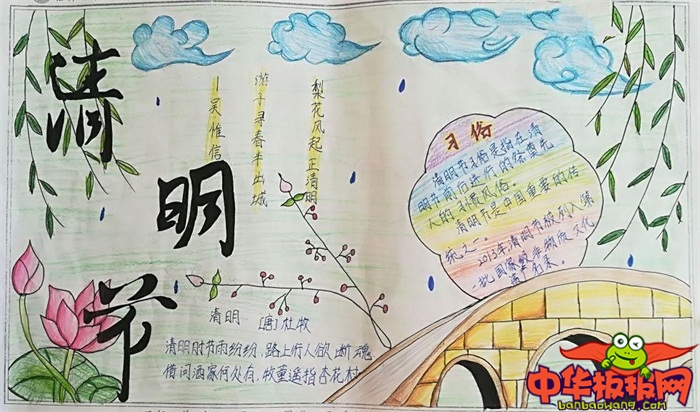 清
明
节
梨花风起正清明
游子寻春半出城
吴惟信
习俗
清明节习俗是指在清
明节前后进行的祭奠先
人的
风俗。
清明节是中国重要的传
统之一。
2013年清明节被列入第
一批国家级非物质文化
遗产名录。
清明
[唐]杜牧
清明时节雨纷纷,路上行人欲断魂
借问酒家何处有,牧童遥指杏花村
中华板报网
banbaowang.com